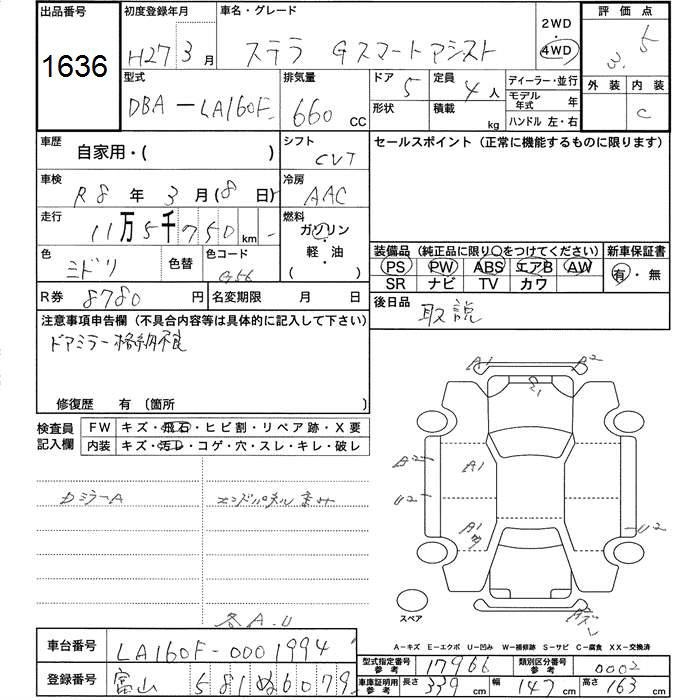 出品番号 初度登録年月 車名・グレード 2WD 評価点
1636 H27 3月 ステラ Gスマートアシスト 4WD 3.5
型式 排気量 ドア 定員 ディーラー・並行 外装 内装
DBA-LA160F 660 CC 5 4人 モデル年式 年 C
形状 積載 kg ハンドル 左・右
車歴 シフト セールスポイント (正常に機能するものに限ります)
自家用・( ) CVT
車検 冷房
R8年3月(8日) AAC
走行 燃料
11万5千750km ガソリン・軽・油 ( )
色 色替 色コード 装備品 (純正品に限り○をつけてください) 新車保証書
ミドリ G56 PS PW ABS エアB AW 有・無
SR ナビ TV カワ
R券 8780円 名変期限 月 日 後日品 取説
注意事項申告欄 (不具合内容等は具体的に記入して下さい)
ドアミラー格納不良
修復歴 有 〔箇所 〕
検査員記入欄 FW キズ・飛石・ヒビ割・リペア跡・X要
内装 キズ・汚レ・コゲ・穴・スレ・キレ・破レ
A1 A2
A2 A1
U2 U2
A1
DミラーA
各A.U
スペア
A-キズ E-エクボ U-凹み W-補修跡 S-サビ C-腐食 XX-交換済
車台番号 LA160F-0001994 型式指定番号 参考 17966 類別区分番号 参考 0002
登録番号 富山 581 ぬ6079 車庫証明用 参考 長さ 339cm 幅 147cm 高さ 163cm